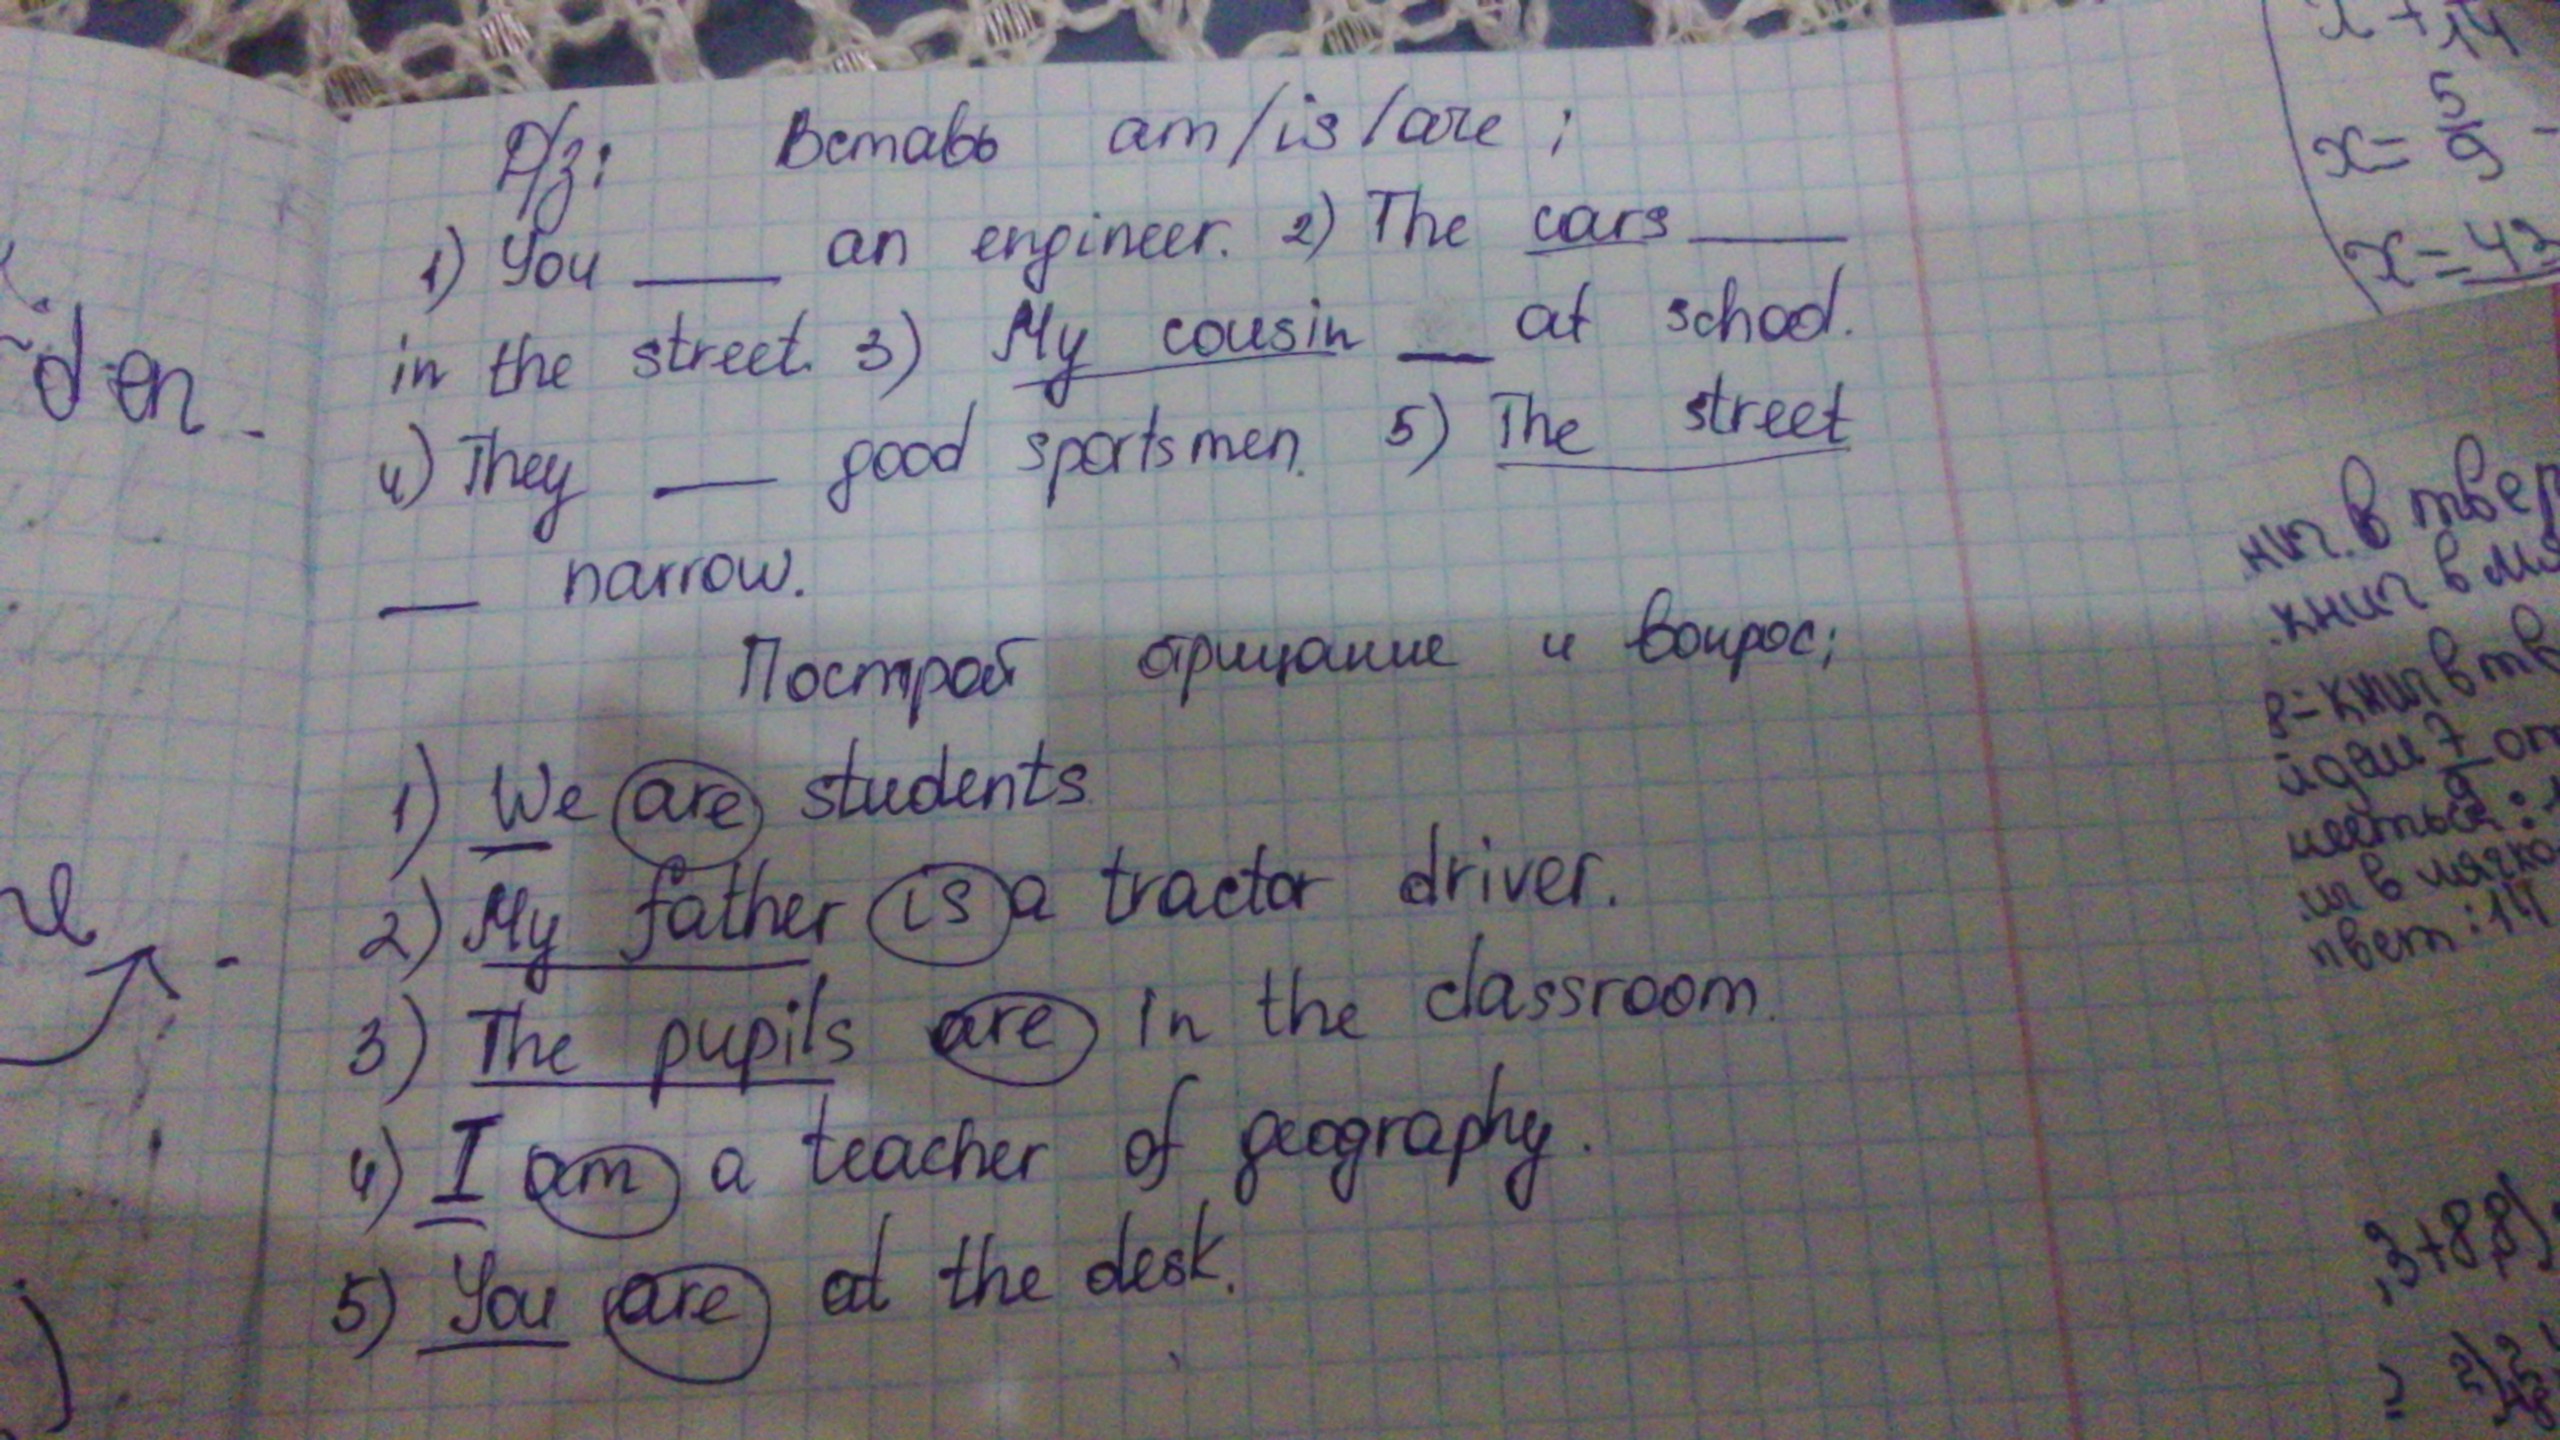 Д/з: Вставь am/is/are;
1) You ____ an engineer. 2) The cars ____
in the street. 3) My cousin __ at school.
4) They ___ good sportsmen. 5) The street
___ narrow.
Построй отрицание и вопрос;
1) We are students.
2) My father is a tractor driver.
3) The pupils are in the classroom.
4) I am a teacher of geography.
5) You are at the desk.
den
x + 14
x = 5/9 -
x = 43
книг в твер
книг в мя
8 = книг в тв
йдём 7/9 от
in в мягко
твет: 14
,3+8,8)